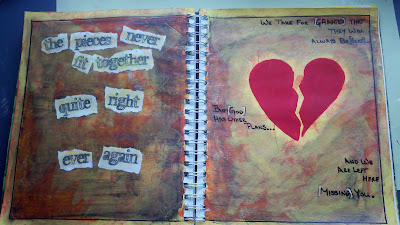 the pieces never
fit together
quite right
ever again
We Take For [Granted] That
They Will
Always Be [Here].
But [God]
Has Other
Plans...
And We
Are Left
Here
[Missing] You.